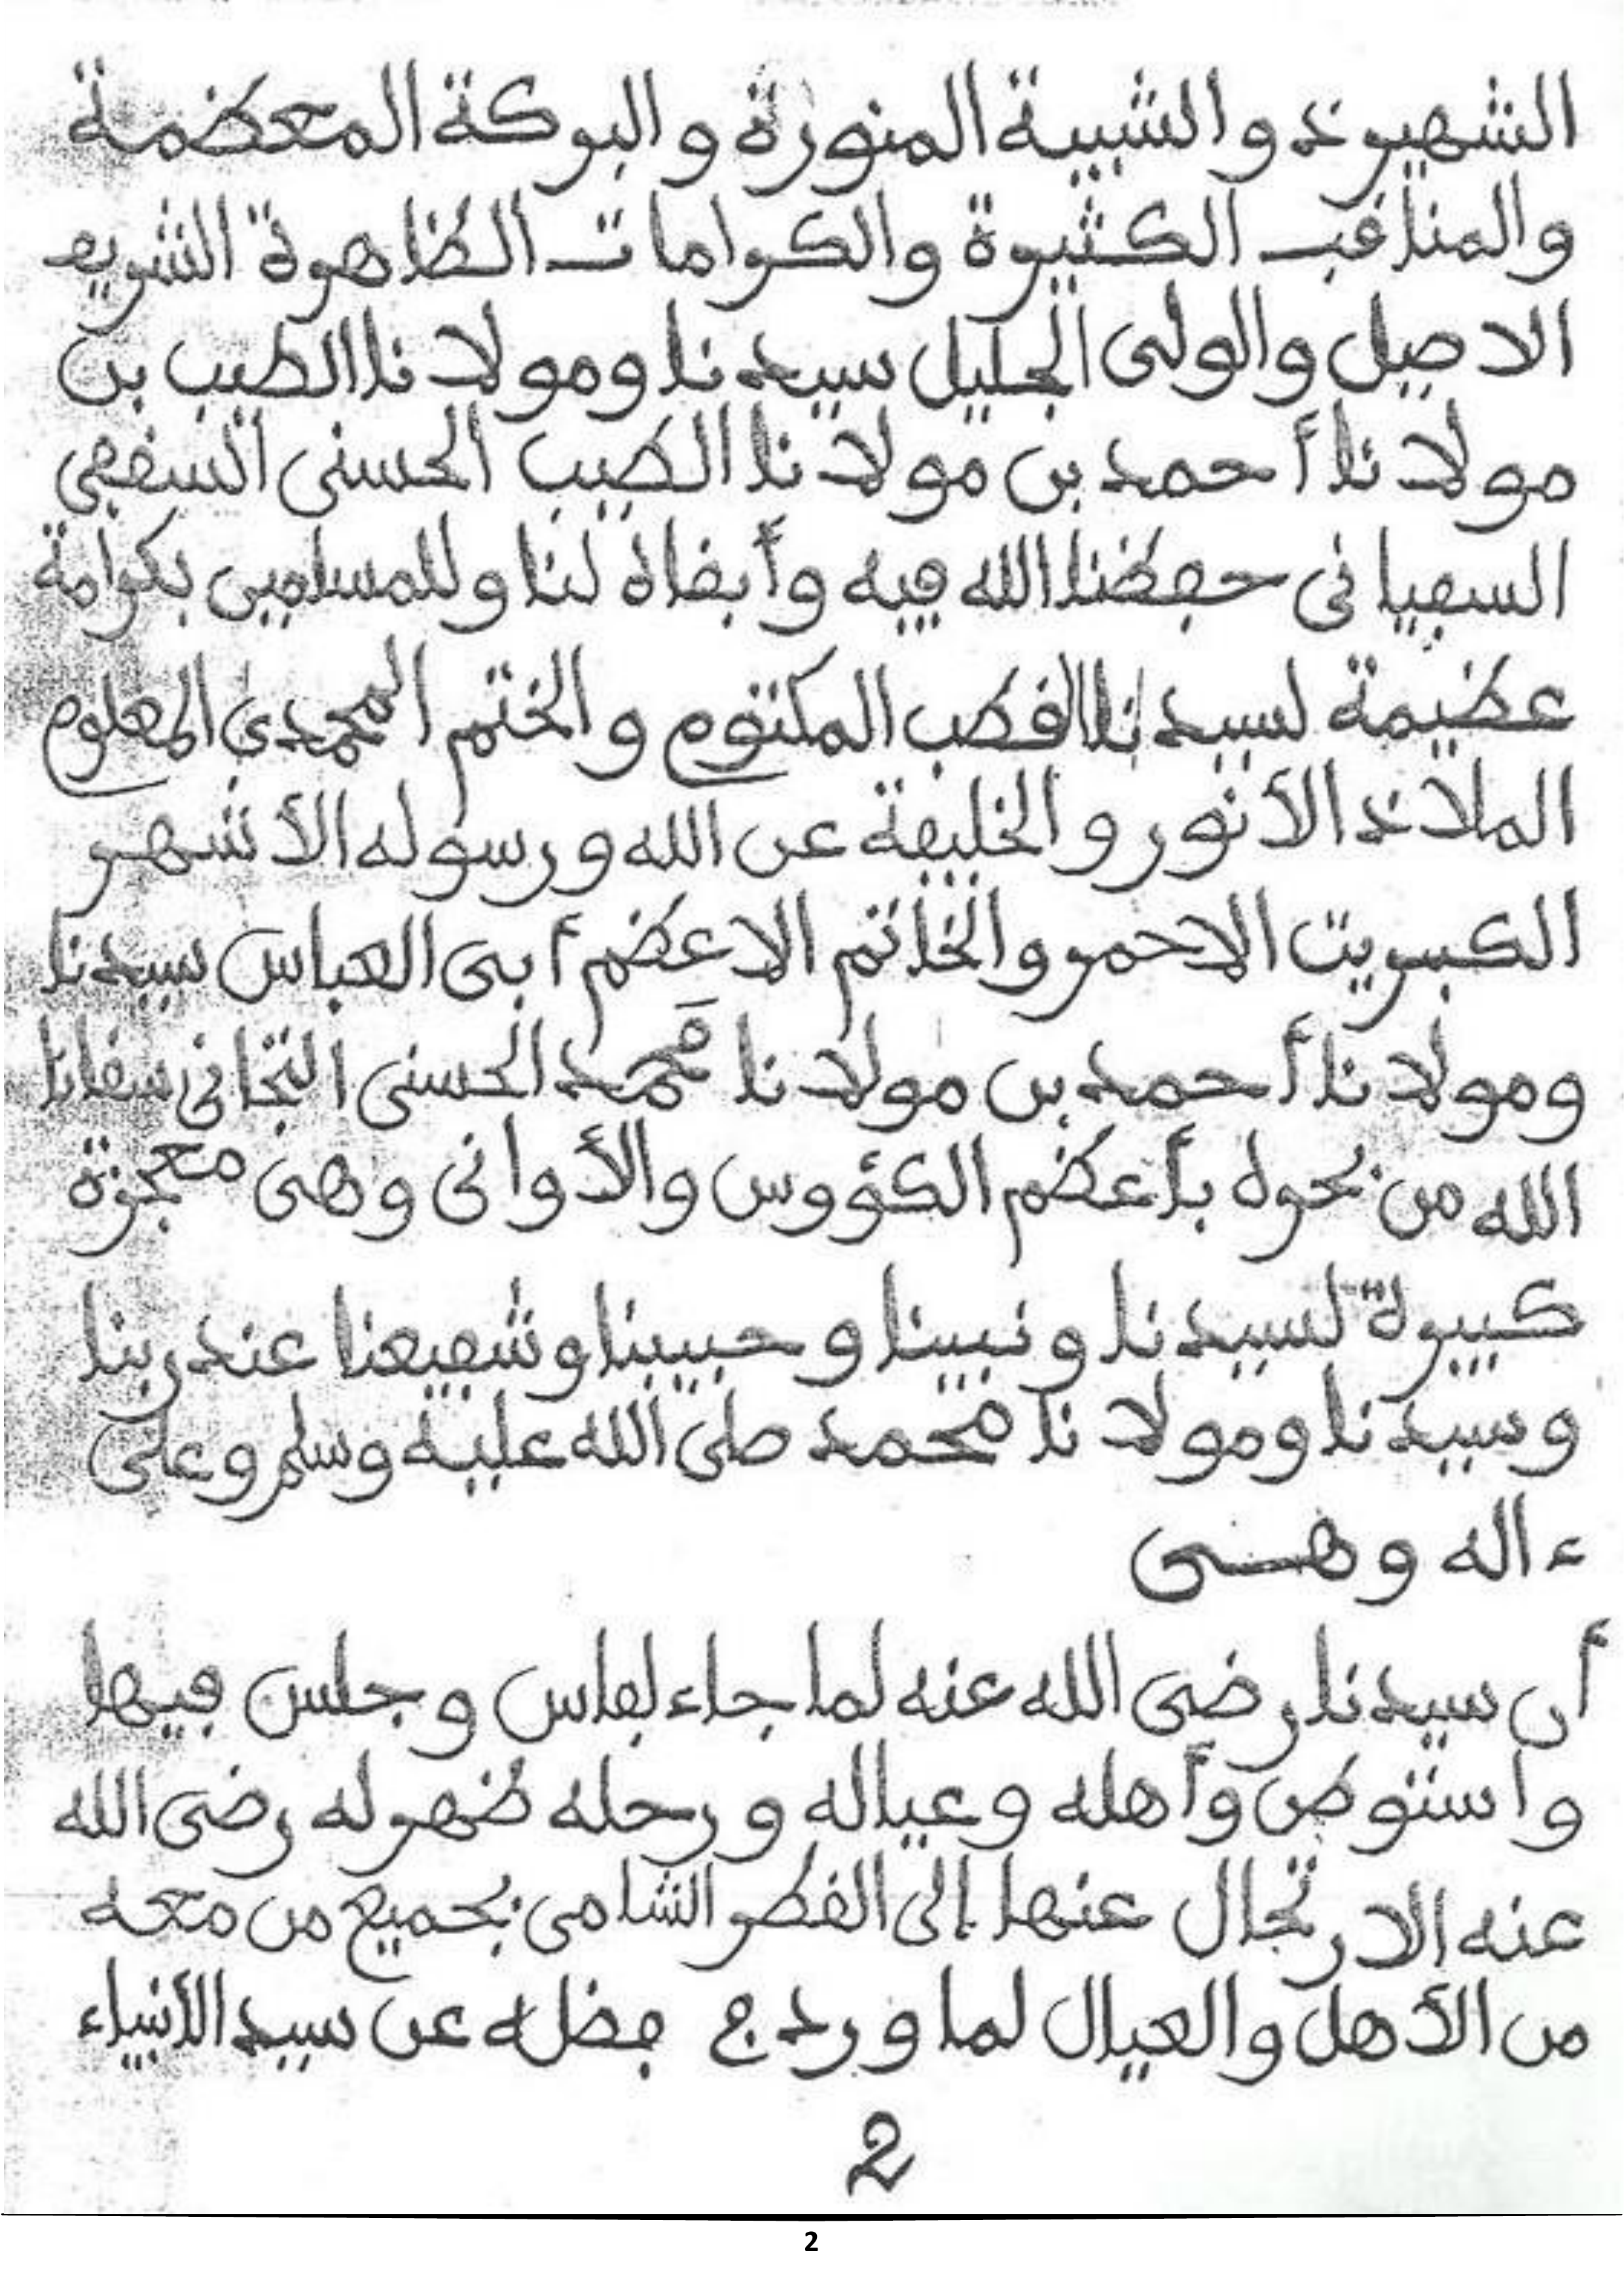 الشهيرة والشيبة المنورة والبركة المعظمة
والمناقب الكثيرة والكرامات الظاهرة الشريف
الاصيل والولى الجليل سيدنا ومولانا الطيب بن
مولانا أحمد بن مولانا الطيب الحسنى
السفيانى حفظنا الله فيه وأبقاه لنا وللمسلمين بكرامة
عظيمة لسيدنا القطب المكتوم والختم المحمدي المعلوم
الملاذ الأنور والخليفة عن الله ورسوله الأشهر
الكبريت الاحمر والخاتم الاعظم أبى العباس سيدنا
ومولانا أحمد بن مولانا محمد الحسنى التجانى سقانا
الله من بحره بأعظم الكؤوس والأوانى وهى معجزة
كبيرة لسيدنا ونبينا وحبيبنا وشفيعنا عند ربنا
وسيدنا ومولانا محمد صلى الله عليه وسلم وعلى
ءاله وهــى
أن سيدنا رضى الله عنه لما جاء لفاس وجلس فيها
واستوطن وأهله وعياله ورحله ظهر له رضى الله
عنه الارتحال عنها إلى القطر الشامى بجميع من معه
من الأهل والعيال لما ورد في فضله عن سيد الأنبياء
2
2